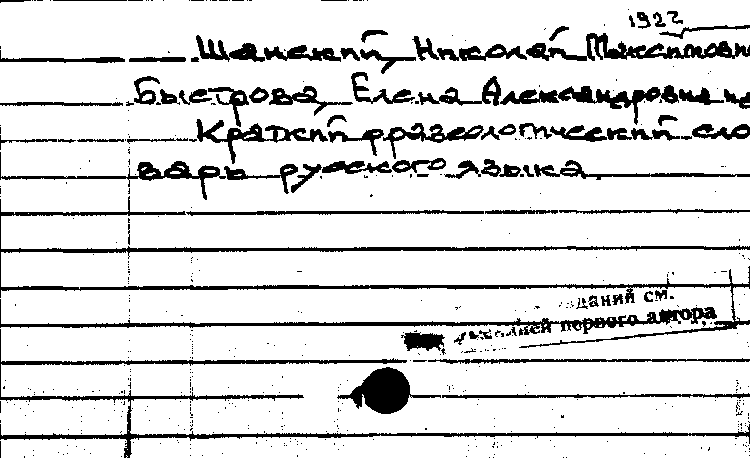 1922
Шанский, Николай Максимови
Быстрова, Елена Александровна и
Краткий фразеологический сло
варь русского языка.
даний см.
первого автора